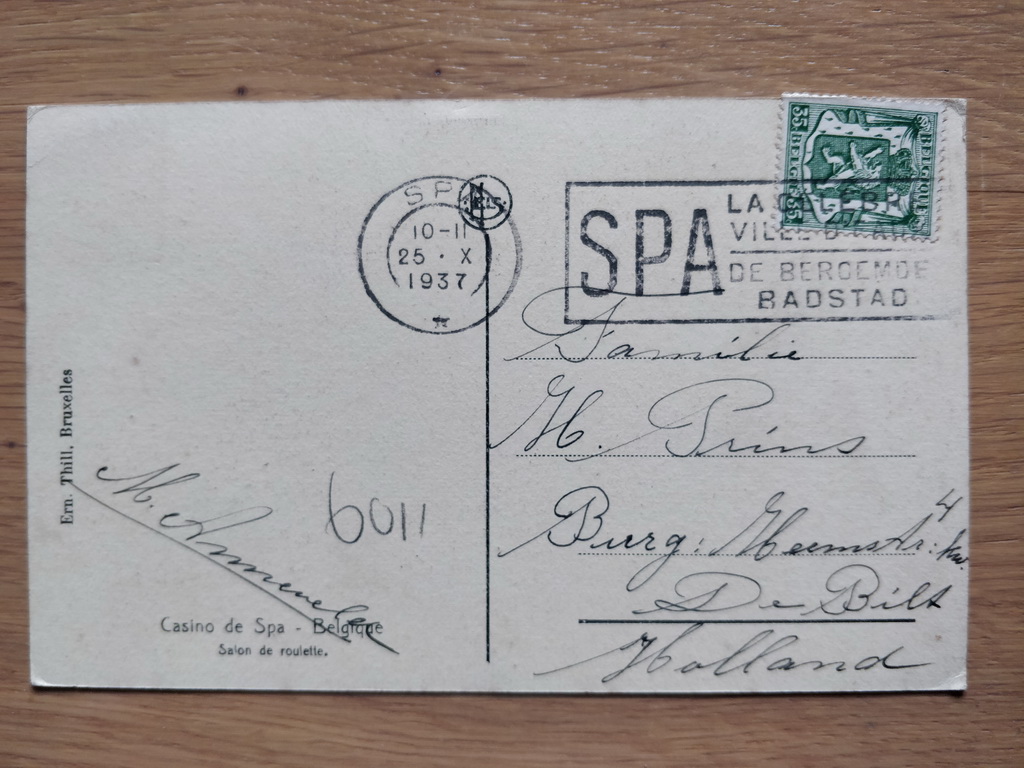 35 BELGIË 35
BELGIQUE
SPA
10-11
25 · X
1937
SPA
LA CÉLÈBRE
VILLE D'EAUX
DE BEROEMDE
BADSTAD
Familie
H. Prins
Burg: Heemstr: 4
De Bilt
Holland
Ern. Thill, Bruxelles
M.
6011
Casino de Spa - Belgique
Salon de roulette.